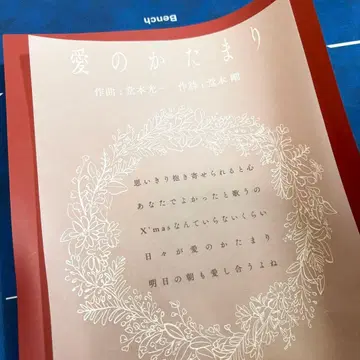 Bench
愛のかたまり
作曲：堂本光一 作詞：堂本剛
思いきり抱き寄せられると心
あなたでよかったと歌うの
X'masなんていらないくらい
日々が愛のかたまり
明日の朝も愛し合うよね